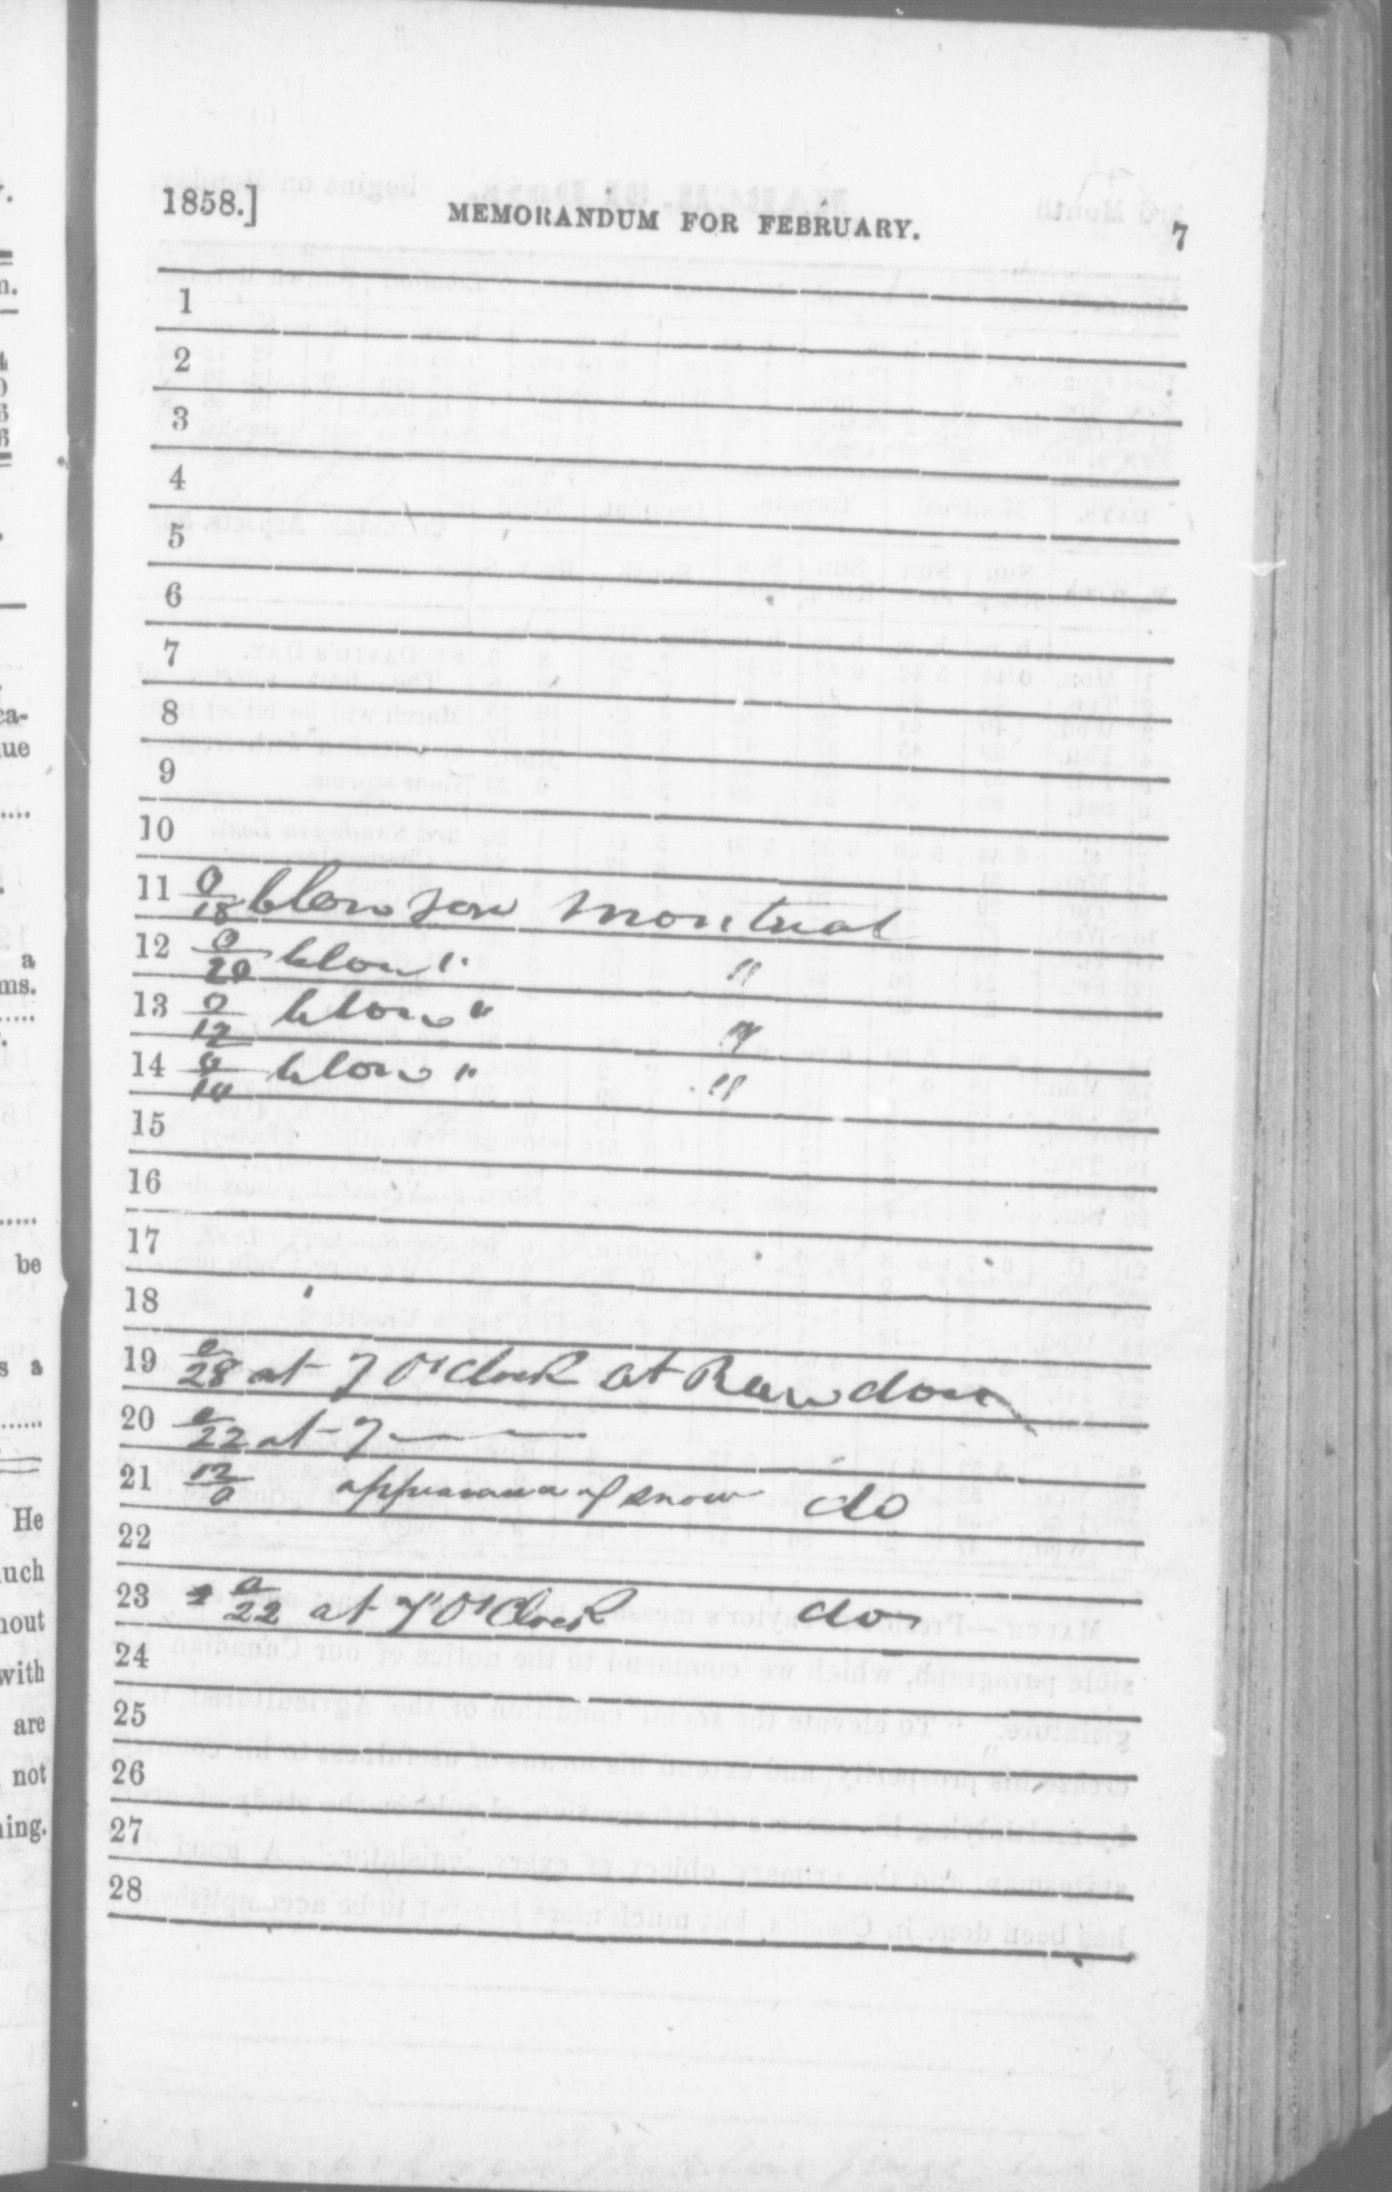 1858.] MEMORANDUM FOR FEBRUARY. 7
1
2
3
4
5
6
7
8
9
10
11 0/18 blow zero Montreal
12 0/20 blow " "
13 0/12 blow " "
14 0/10 blow " "
15
16
17
18
19 0/28 at 7 O'Clock at Rawdon
20 0/22 at 7 — —
21 12/0 appearance of snow do
22
23 0/22 at 7 O'Clock do
24
25
26
27
28